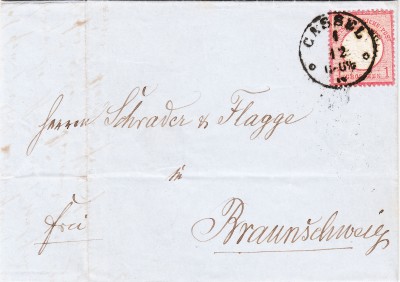 CASSEL
1
12
1
Herren Schrader & Flagge
in
frei
Braunschweig